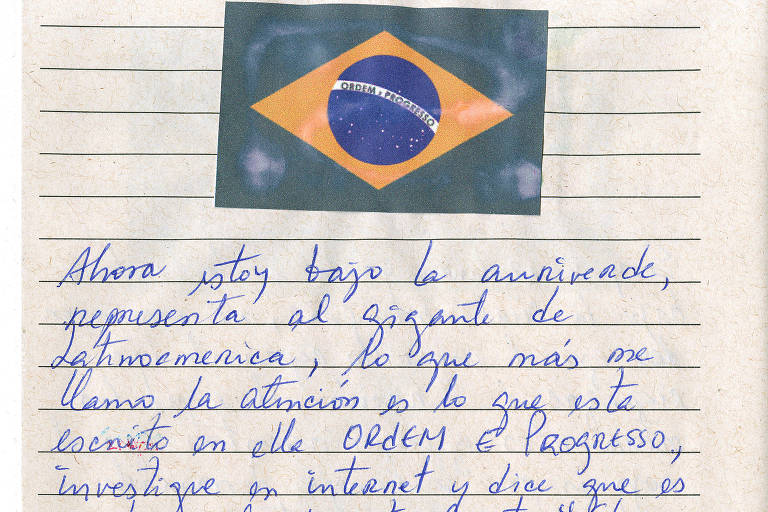 ORDEM E PROGRESSO
Ahora estoy bajo la auriverde,
representa al gigante de
Latinoamerica, lo que más me
llamo la atención es lo que esta
escrito en ella ORdEM E PROGRESSO,
investigue en internet y dice que es